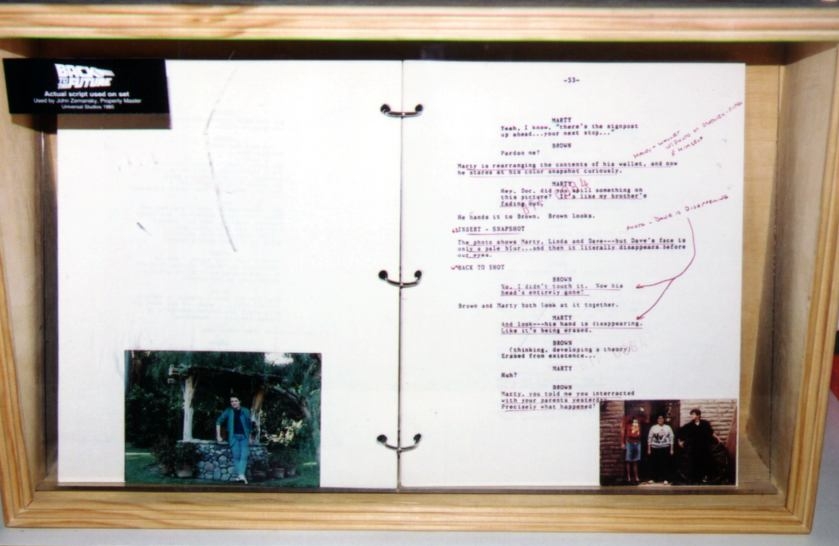 BACK
TO THE
FUTURE
Actual script used on set
Used by John Zemansky, Property Master
Universal Studios 1985
-53-
MARTY
Yeah, I know, "there's the signpost
up ahead...your next stop..."
BROWN
Pardon me?
Marty is rearranging the contents of his wallet, and now
he stares at his color snapshot curiously.
MARTY
Hey, Doc, did you spill something on
this picture? It's like my brother's
fading out.
He hands it to Brown. Brown looks.
PHOTO - DAVE IS DISAPPEARING
INSERT - SNAPSHOT
The photo shows Marty, Linda and Dave---but Dave's face is
only a pale blur...and then it literally disappears before
our eyes.
BACK TO SHOT
BROWN
No, I didn't touch it. Now his
head's entirely gone!
Brown and Marty both look at it together.
MARTY
And look---his hand is disappearing.
Like it's being erased.
BROWN
(thinking, developing a theory)
Erased from existence...
MARTY
Huh?
BROWN
Marty, you told me you interracted
with your parents
Precisely what happened?